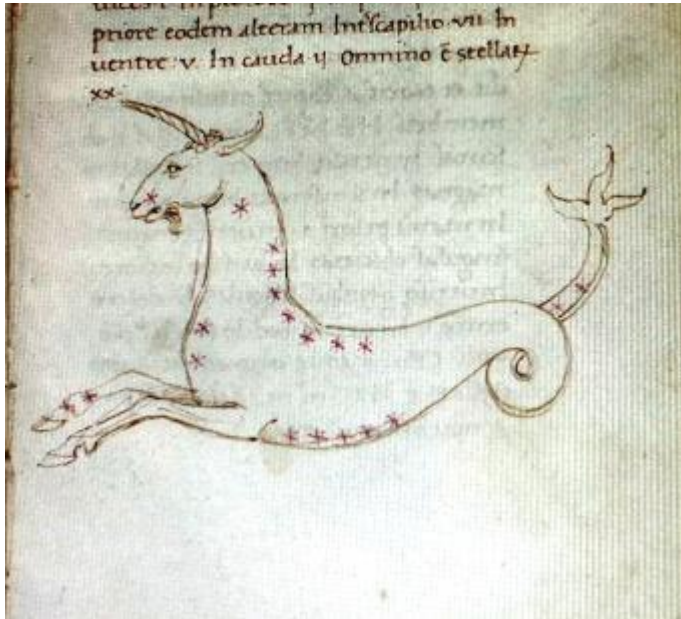 priore eodem alteram Interscapilio · vii · In
uentre · v · In cauda ij Omnino ē stellaꝝ
xx ·